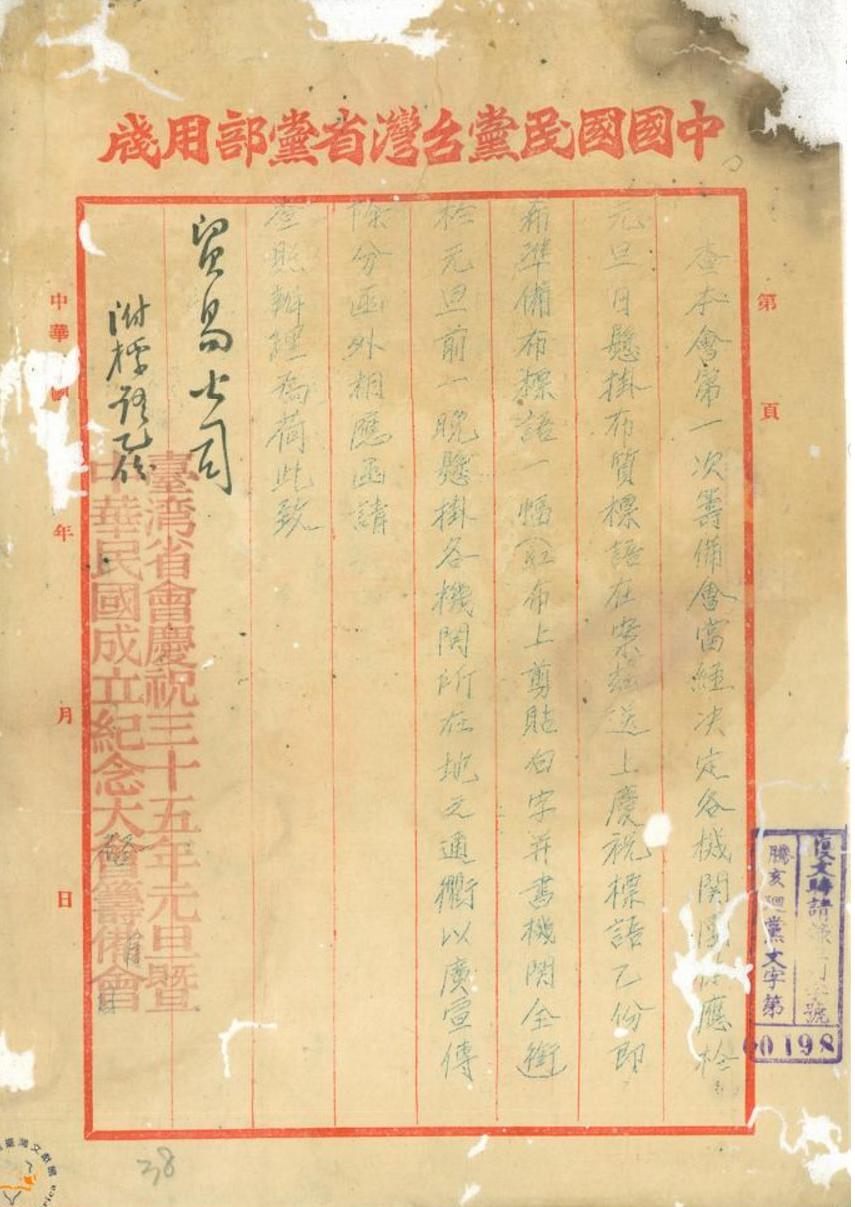 中國國民黨台灣省黨部用牋
第 頁
查本會第一次籌備會當經決定各機關應於
元旦日懸掛布質標語在案茲送上慶祝標語乙份即
希準備布標語一幅（紅布上剪貼白字并書機關全銜）
於元旦前一晚懸掛各機關所在地之通衢以廣宣傳
除分函外相應函請
查照辦理為荷此致
貿易公司
附標語乙份
臺湾省會慶祝三十五年元旦暨
中華民國成立紀念大會籌備會
中華 國 年 月 日
復文時請 號
騰亥迴黨文字第
0198
38